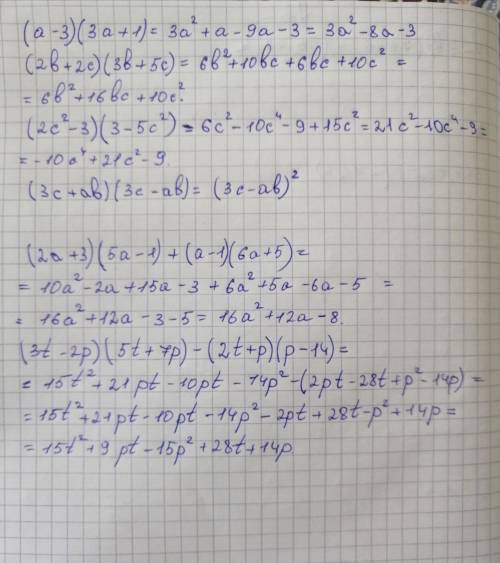 (a-3)(3a+1) = 3a²+a-9a-3 = 3a²-8a-3
(2в+2с)(3в+5с) = 6в²+10вс+6вс+10с² =
= 6в²+16вс+10с².
(2с²-3)(3-5с²) = 6с²-10с⁴-9+15с² = 21с²-10с⁴-9 =
= -10с⁴+21с²-9.
(3с+ав)(3с-ав) = (3с-ав)²
(2a+3)(5a-1)+(a-1)(6a+5) =
= 10a²-2a+15a-3+6a²+5a-6a-5 =
= 16a²+12a-3-5 = 16a²+12a-8.
(3t-2p)(5t+7p)-(2t+p)(p-14) =
= 15t²+21pt-10pt-14p²-(2pt-28t+p²-14p) =
= 15t²+21pt-10pt-14p²-2pt+28t-p²+14p =
= 15t²+9pt-15p²+28t+14p.